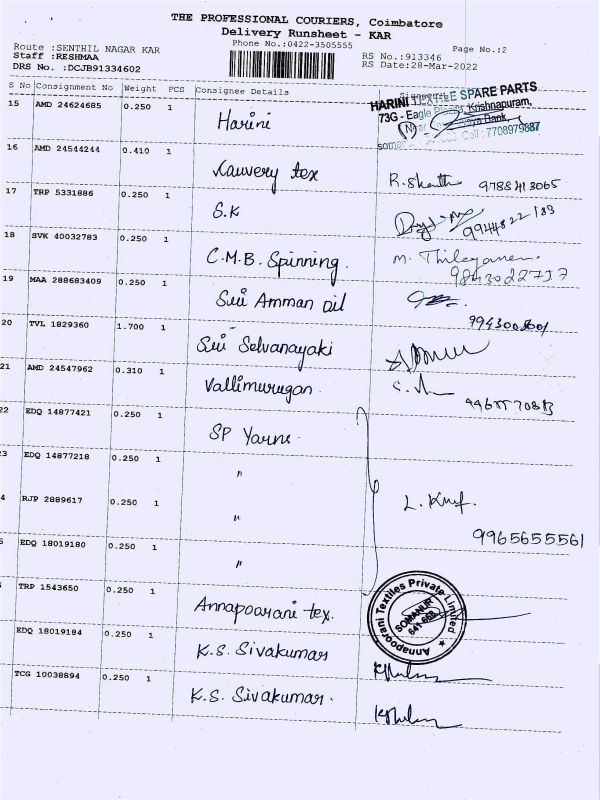 THE PROFESSIONAL COURIERS, Coimbatore
Delivery Runsheet - KAR
Phone No.:0422-3505555
Page No.:2
Route :SENTHIL NAGAR KAR
Staff :RESHMAA
RS No.:913346
DRS No. :DCJB91334602
RS Date:28-Mar-2022
S No Consignment No Weight PCS Consignee Details
15 AMD 24624685 0.250 1 Harini
HARINI TEXTILE SPARE PARTS
73G - Eagle Krishnapuram,
Near Bank,
Cell : 7708979887
16 AMD 24544244 0.410 1 Kauvery tex 9788413065
17 TRP 5331886 0.250 1 S.K
18 SVK 40032783 0.250 1 C.M.B. Spinning. 9843022737
19 MAA 288683409 0.250 1 Sri Amman Oil
20 TVL 1829360 1.700 1 Sri Selvanayaki
21 AMD 24547962 0.310 1 Vallimurugan
22 EDQ 14877421 0.250 1 SP Yarns
3 EDQ 14877218 0.250 1 "
4 RJP 2889617 0.250 1 "
9965655561
5 EDQ 18019180 0.250 1 "
TRP 1543650 0.250 1 Annapoorani tex.
Annapoorani Textiles Private Limited
SOMANUR
641-668
EDQ 18019184 0.250 1 K.S. Sivakumar
TCG 10038894 0.250 1 K.S. Sivakumar.